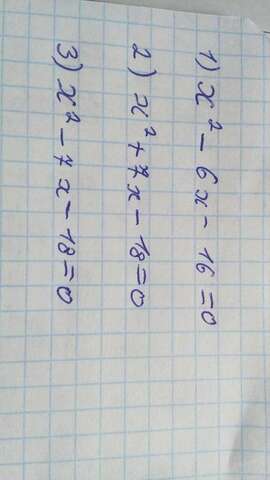 1) x² - 6x - 16 = 0
2) x² + 7x - 18 = 0
3) x² - 7x - 18 = 0